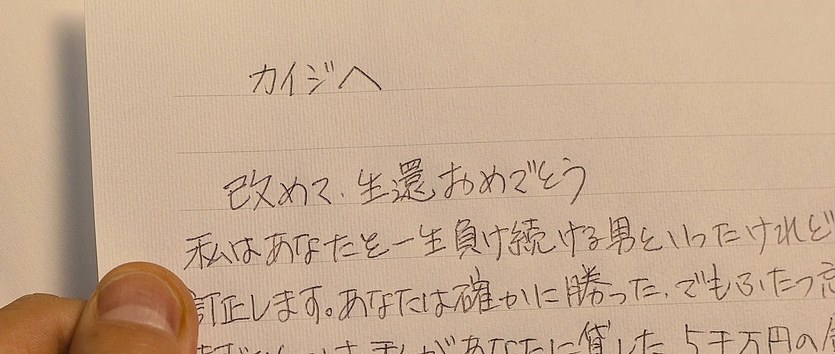 カイジへ
改めて、生還おめでとう
私はあなたを一生負け続ける男といったけれど
訂正します。あなたは確かに勝った、でもふたつ忘
私があなたに貸した 5千万円の